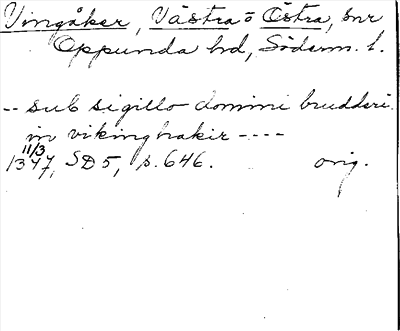 Vingåker, Västra o Östra, snr
Oppunda hd, Söderm. l.
-- sub sigillo domini brudderi
in vikinghakir ----
11/3
1347, SD 5, s. 646. orig.